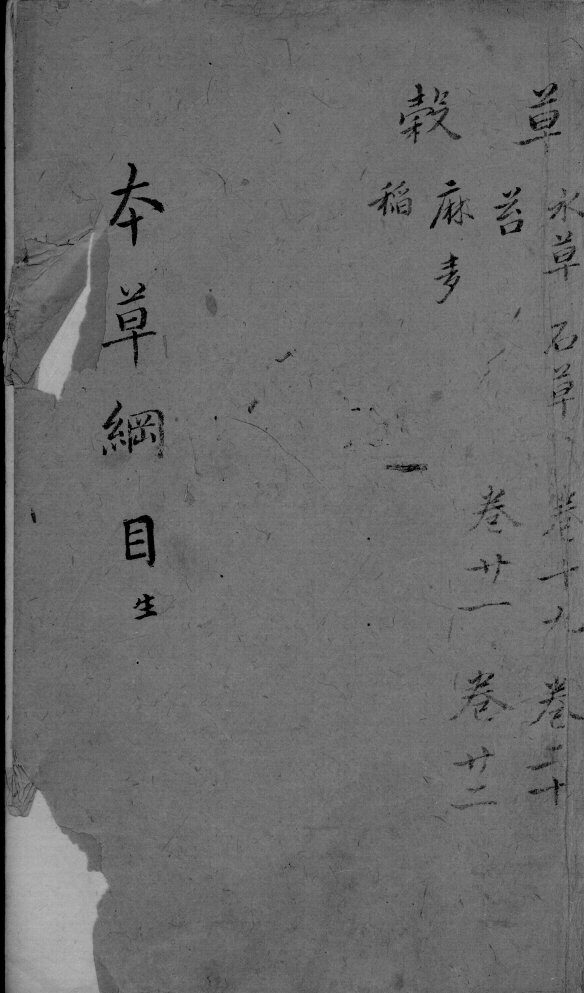 草 水草 石草 卷十九 卷二十
苔 卷廿一 卷廿二
穀 麻麥
稲
本草綱目生